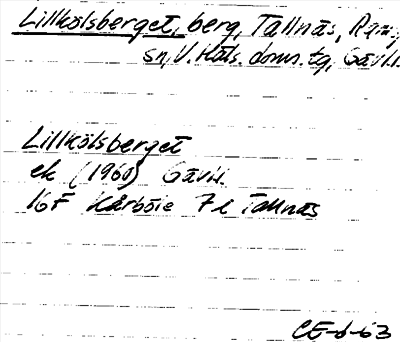 Lillkölsberget, berg, Tallnäs, Ram.
sn, V. Häls. doms. tg, Gävl.l.
Lillkölsberget
ek (1960) Gävl.l.
16F Kårböle 7e Tallnäs
CE-6-63